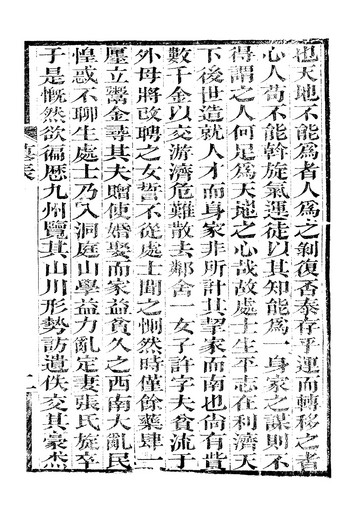 也天地不能為者人為之剝復否泰存乎運而轉移之者
心人苟不能斡旋氣運徒以其知能為一身家之謀則不
得謂之人何足為天地之心哉故處士生平志在利濟天
下後世造就人才而身家非所計其挈家而南也尚有貲
數千金以交游濟危難散去鄰舍一女子許字夫貧流于
外母將改聘之女誓不從處士聞之惻然時僅餘藥肆一
廛立鬻金尋其夫贈使婚娶而家益貧久之西南大亂民
惶惑不聊生處士乃入洞庭山學益力亂定妻張氏旋卒
于是慨然欲徧歷九州覽其山川形勢訪遺佚交其豪杰
墓表
二